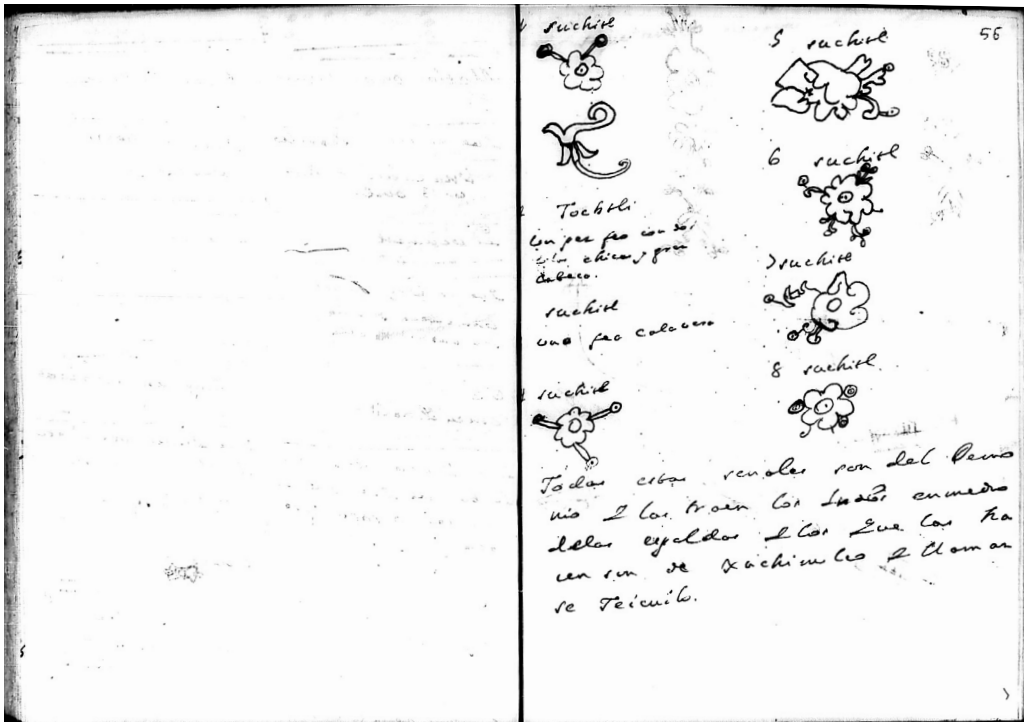 56
suchitl
Tochtli
un pez feo con so
chica y gran
cabeca.
suchitl
una fea calavera
suchitl
5 suchitl
6 suchitl
7 suchitl
8 suchitl
Todas estas señales son del Demo
nio I las traen los Indios enmedio
delas espaldas I los que las ha
cen son de Xuchimilco I llaman
se Teicuilo.